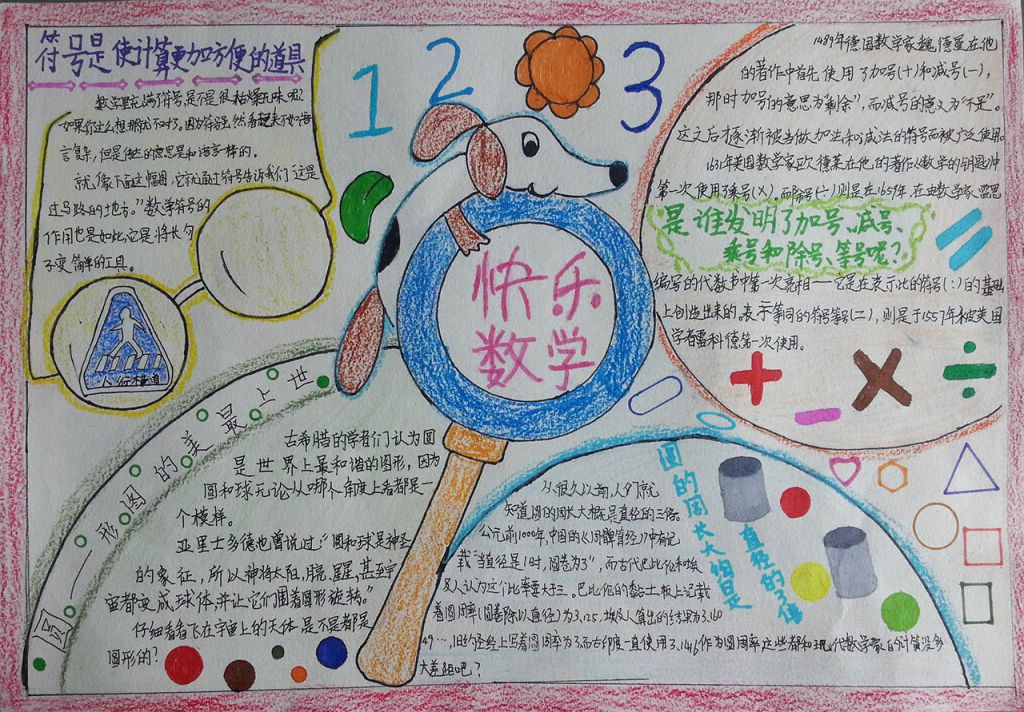 符号是使计算更加方便的道具
数学里充满了符号,是不是很枯燥无味呢?
如果你这么想那就不对了。因为符号虽然看起来不如语
言复杂,但是他的意思是和语言一样的。
就像下面这幅图,它就通过符号告诉我们“这是
过马路的地方。”数学符号的
作用也是如此,它是将长句
子变简单的工具。
人行横道
1 2 3
快乐
数学
1489年德国数学家魏德曼在他
的著作中首先使用了加号(十)和减号(一),
那时加号的意思为“剩余”,而减号的意义为“不足”。
这之后逐渐被当做加法和减法的符号而被广泛使用。
1631年英国数学家欧德莱在他的著作《数学的钥匙》中
第一次使用了乘号(×),而除号(÷)则是在1659年在由数学家雷恩
是谁发明了加号、减号、
乘号和除号、等号呢?
编写的代数书中第一次亮相——它是在表示比的符号(:)的基础
上创造出来的。表示等同的符号等号(二),则是于1557年被英国
学者雷科德第一次使用。
圆——世上最美的图形
古希腊的学者们认为圆
是世界上最和谐的图形,因为
圆和球无论从哪个角度上看都是一
个模样。
亚里士多德也曾说过:“圆和球是神圣
的象征,所以神将太阳,月亮,星星,甚至宇
宙都变成球体,并让它们围着圆形旋转。”
仔细看看飞在宇宙上的天体是不是都是
圆形的?
圆的周长大约是
直径的3倍
从很久以前,人们就
知道圆的周长大概是直径的三倍。
公元前1000年,中国的《周髀算经》中有记
载“当直径是1时,圆卷为3”,而古代巴比伦和埃
及人认为这个比率要大于三。巴比伦的黏土板上记载
着圆周率(圆卷除以直径)为3.125,埃及人算出的结果为3.160
49…,旧约圣经上写着圆周率为3而古印度一直使用了3.1416作为圆周率这些都和现代数学家的计算没多
大差距吧?